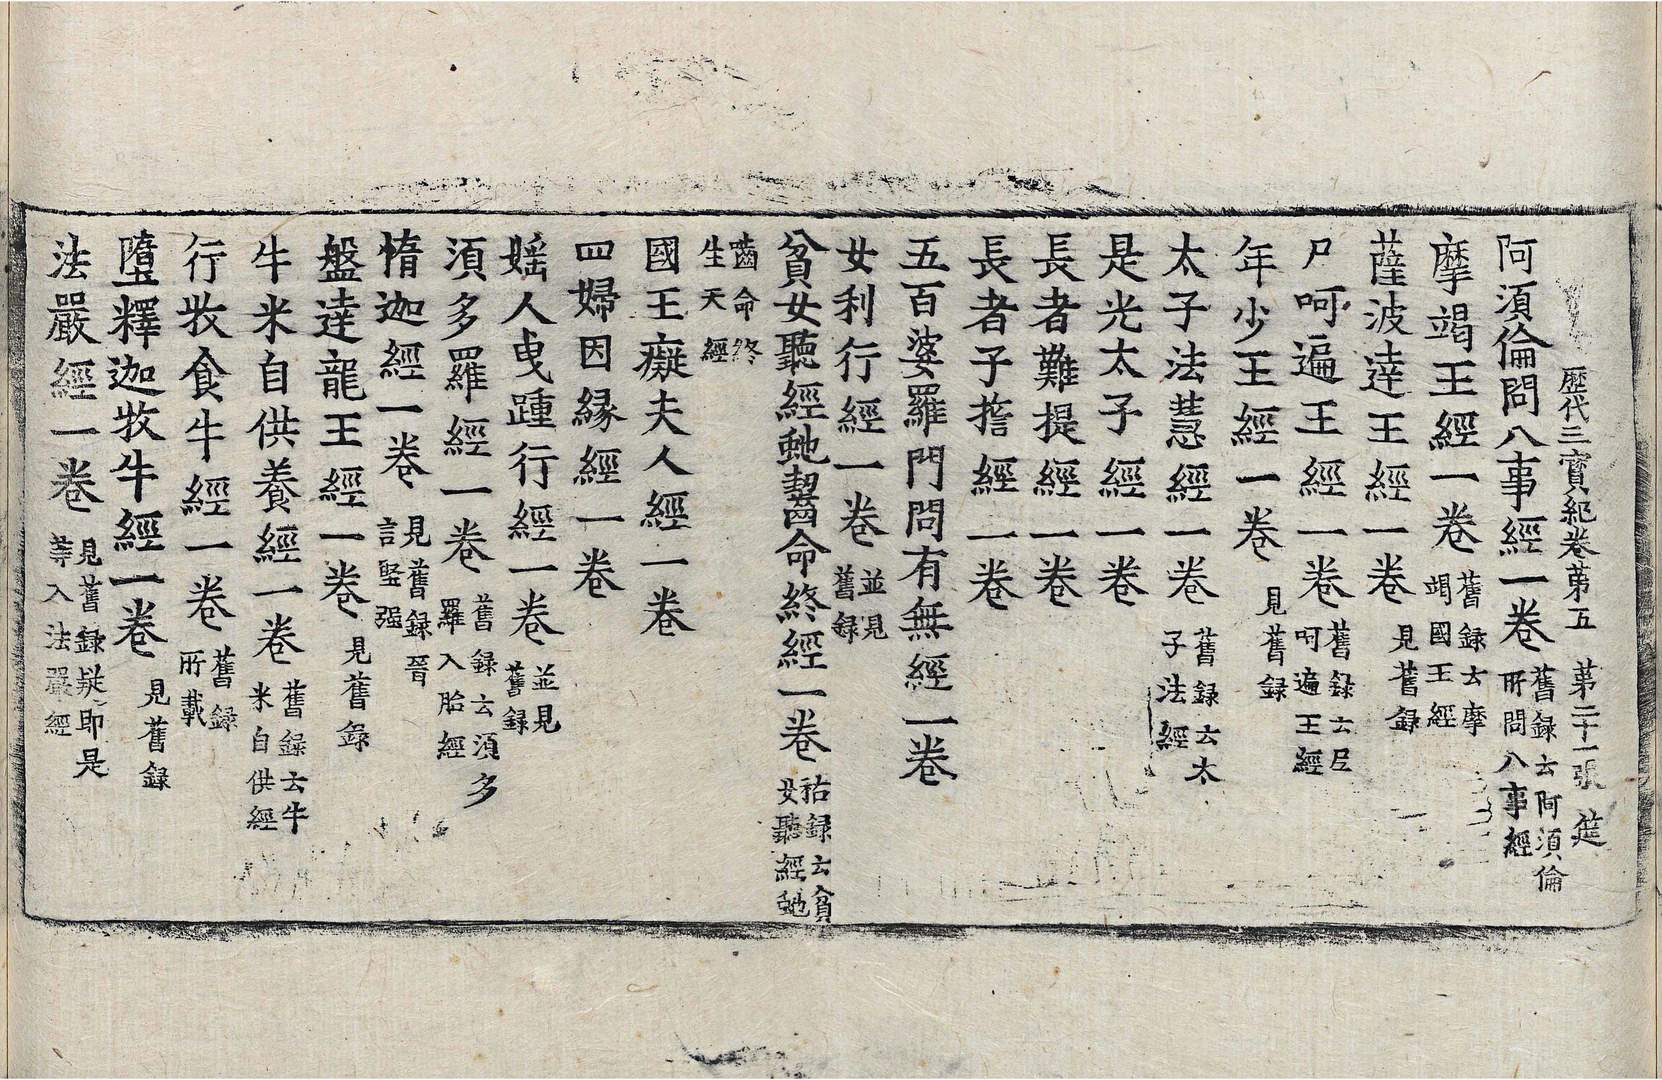 歷代三寶紀卷第五 第二十一張 筵
阿須倫問八事經一卷 舊録云阿須倫所問八事經
摩竭王經一卷 舊録云摩竭國王經
薩波達王經一卷 見舊録
尸呵遍王經一卷 舊録云尸呵遍王經
年少王經一卷 見舊録
太子法慧經一卷 舊録云太子法經
是光太子經一卷
長者難提經一卷
長者子誓經一卷
五百婆羅門問有無經一卷
女利行經一卷 並見舊録
貧女聽經虵齧命終經一卷 祐録云貧女聽經虵
齒命終生天經
國王癡夫人經一卷
四婦因緣經一卷
婬人曳踵行經一卷 並見舊録
須多羅經一卷 舊録云須多羅入胎經
惰迦經一卷 見舊録晉言堅强
盤達龍王經一卷 見舊録
牛米自供養經一卷 舊録云牛米自供經
行牧食牛經一卷 舊録所載
墮釋迦牧牛經一卷 見舊録
法嚴經一卷 見舊録疑即是等入法嚴經